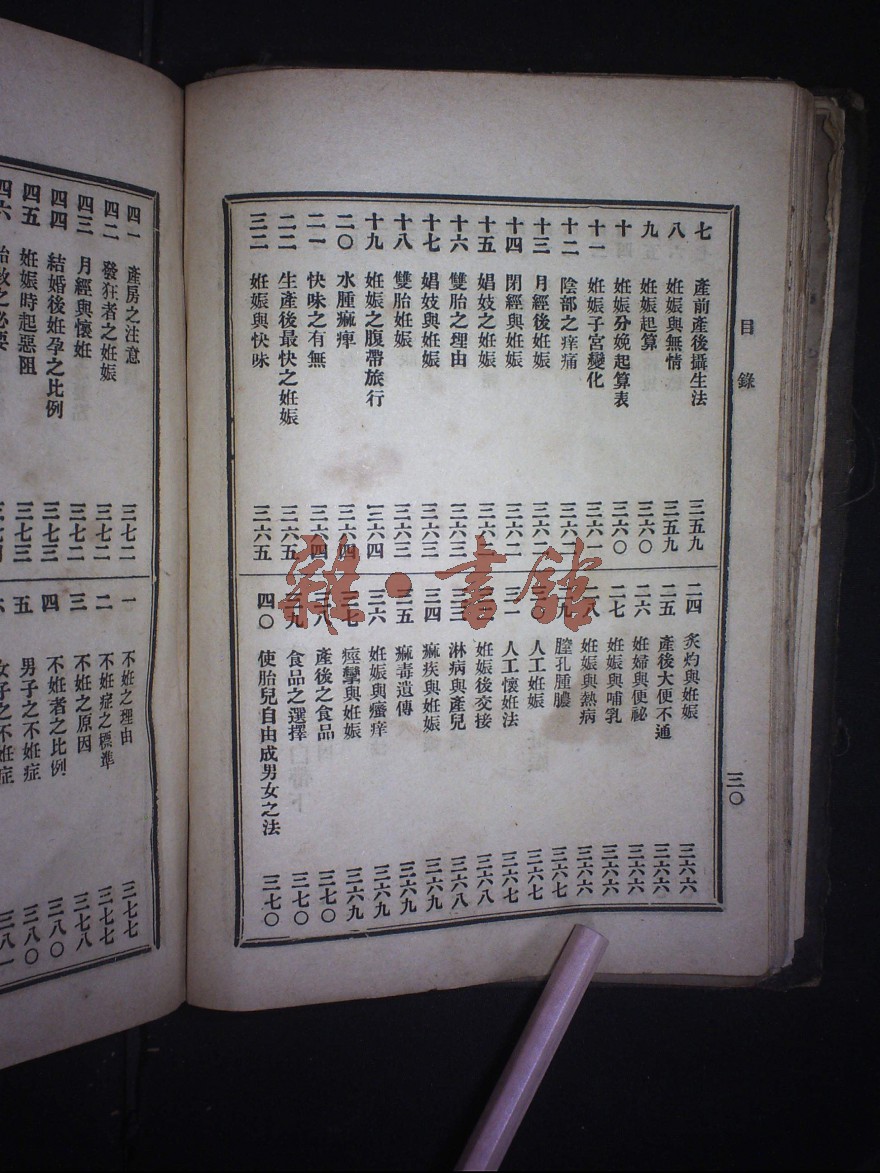 目錄
七　產前產後攝生法　三五九
八　妊娠與無情　三五九
九　妊娠起算　三六〇
十　妊娠分娩起算表　三六〇
十一　妊娠子宮變化　三六一
十二　陰部之痒痛
十三　月經後妊娠
十四　閉經與妊娠
十五　娼妓之妊娠
十六　雙胎之理由　三六三
十七　娼妓與妊娠　三六三
十八　雙胎妊娠　三六三
十九　妊娠之腹帶旅行　三六四
二〇　水腫痲痺　三六四
二一　快味之有無　三六四
二二　生產後最快之妊娠　三六五
三二　妊娠與快味　三六五
二四　炙灼與妊娠　三六六
二五　產後大便不通　三六六
二六　妊婦與便祕　三六六
二七　妊娠與哺乳　三六六
二八　妊娠與熱病　三六六
膣孔腫膿　三六七
人工妊娠　三六七
三一　人工懷妊法　三六七
妊娠後交接　三六八
淋病與產兒　三六八
三四　痲疾與妊娠　三六九
三五　痲毒遺傳　三六九
三六　妊娠與瘙痒　三六九
痙攣與妊娠　三六九
三八　產後之食品　三七〇
三九　食品之選擇　三七〇
四〇　使胎兒自由成男女之法　三七〇
三〇
四一　產房之注意　三七二
四二　發狂者之妊娠　三七二
四三　月經與懷妊　三七二
四四　結婚後妊孕之比例　三七三
四五　妊娠時起惡阻　三七三
四六　胎教之必要
一　不妊之理由　三七七
二　不妊症之標準　三七七
三　不妊之原因　三七八
四　不妊者之比例　三八〇
五　男子之不妊症　三八〇
六　女子之不妊症　三八一
雜·書館